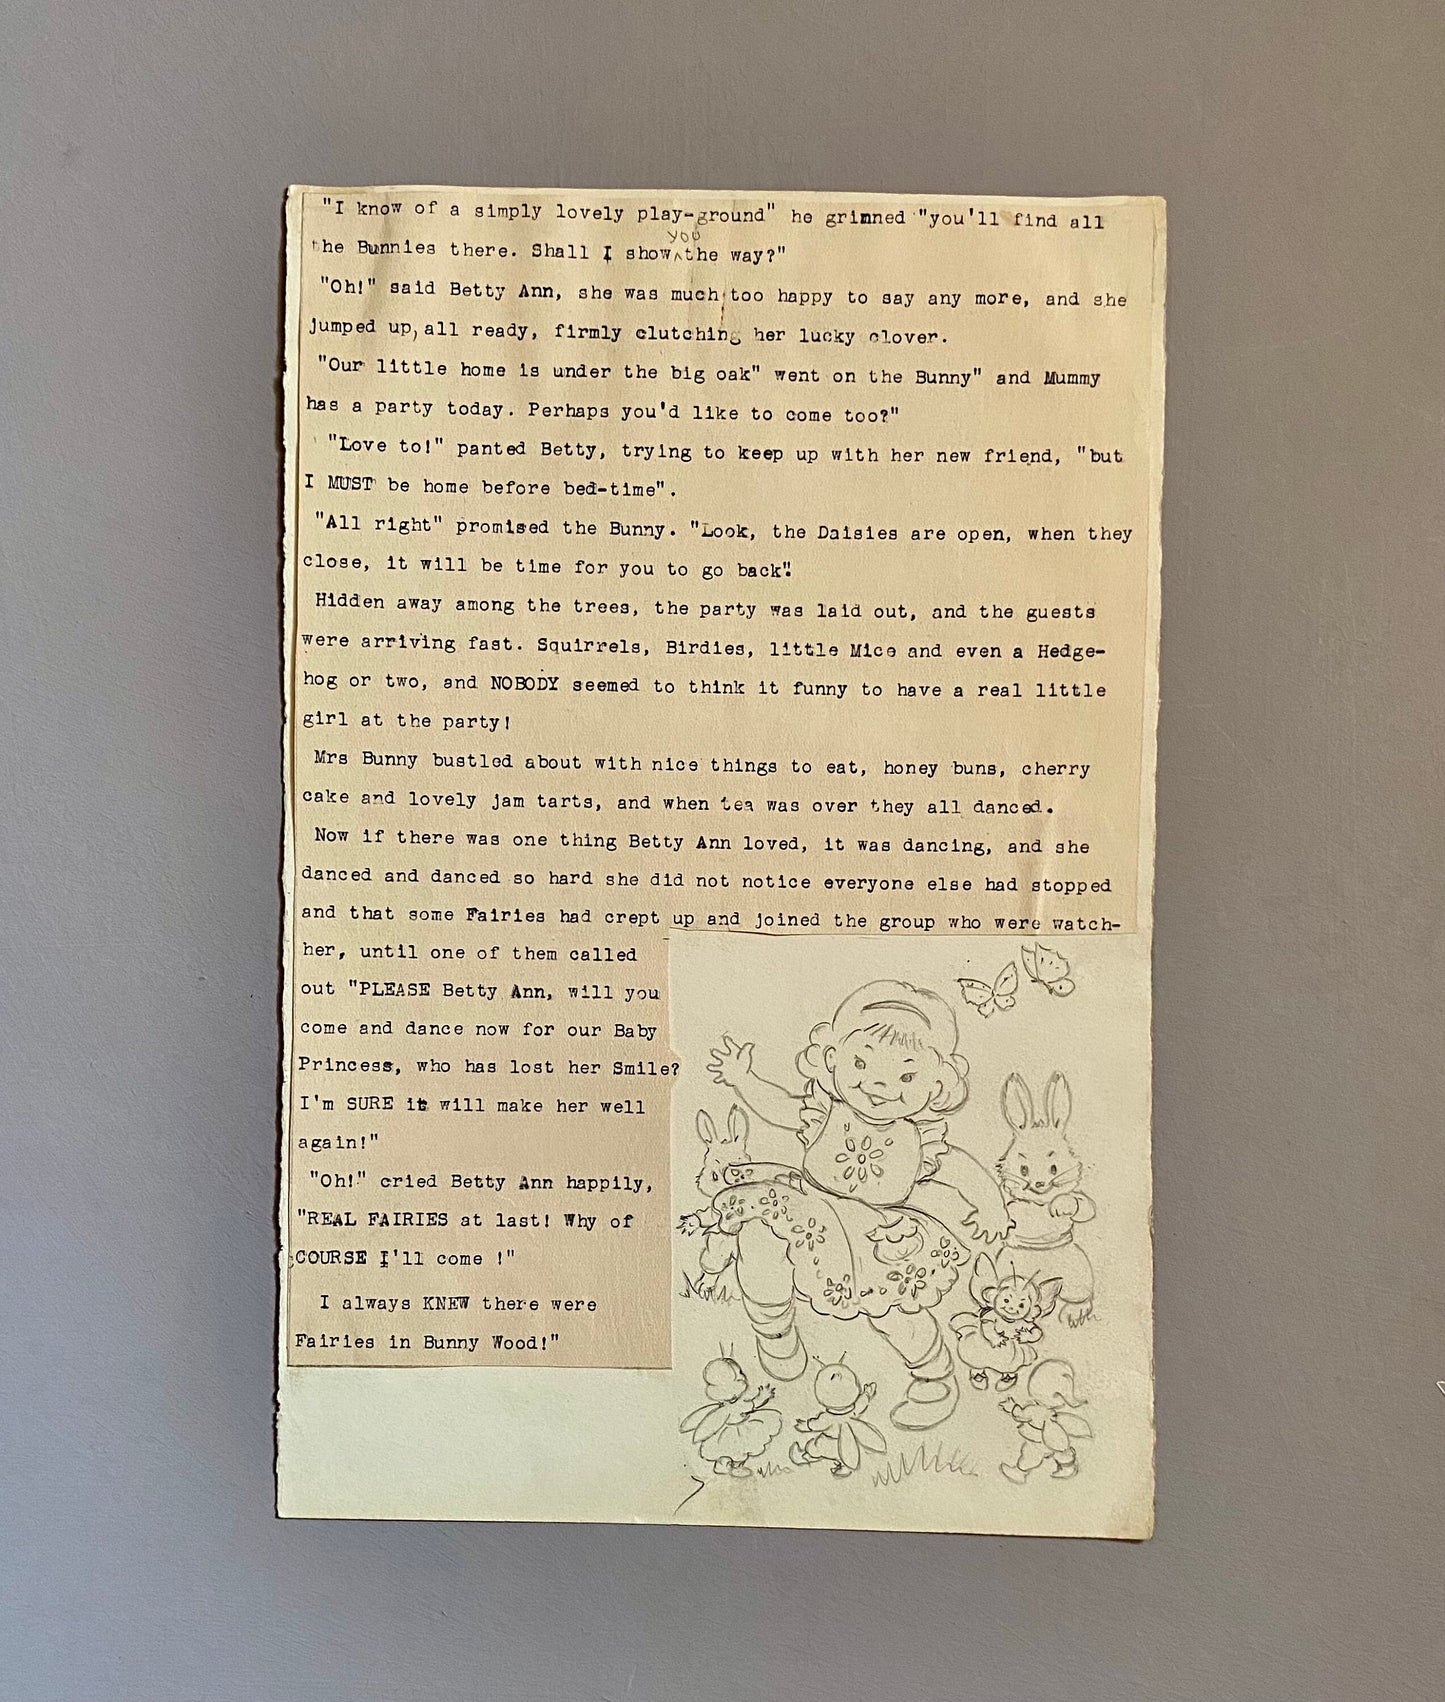 "I know of a simply lovely play-ground" he grinned "you'll find all
the Bunnies there. Shall I show you the way?"
"Oh!" said Betty Ann, she was much too happy to say any more, and she
jumped up, all ready, firmly clutching her lucky clover.
"Our little home is under the big oak" went on the Bunny" and Mummy
has a party today. Perhaps you'd like to come too?"
"Love to!" panted Betty, trying to keep up with her new friend, "but
I MUST be home before bed-time".
"All right" promised the Bunny. "Look, the Daisies are open, when they
close, it will be time for you to go back".
Hidden away among the trees, the party was laid out, and the guests
were arriving fast. Squirrels, Birdies, little Mice and even a Hedge-
hog or two, and NOBODY seemed to think it funny to have a real little
girl at the party!
Mrs Bunny bustled about with nice things to eat, honey buns, cherry
cake and lovely jam tarts, and when tea was over they all danced.
Now if there was one thing Betty Ann loved, it was dancing, and she
danced and danced so hard she did not notice everyone else had stopped
and that some Fairies had crept up and joined the group who were watch-
her, until one of them called
out "PLEASE Betty Ann, will you
come and dance now for our Baby
Princess, who has lost her Smile?
I'm SURE it will make her well
again!"
"Oh!" cried Betty Ann happily,
"REAL FAIRIES at last! Why of
COURSE I'll come !"
I always KNEW there were
Fairies in Bunny Wood!"